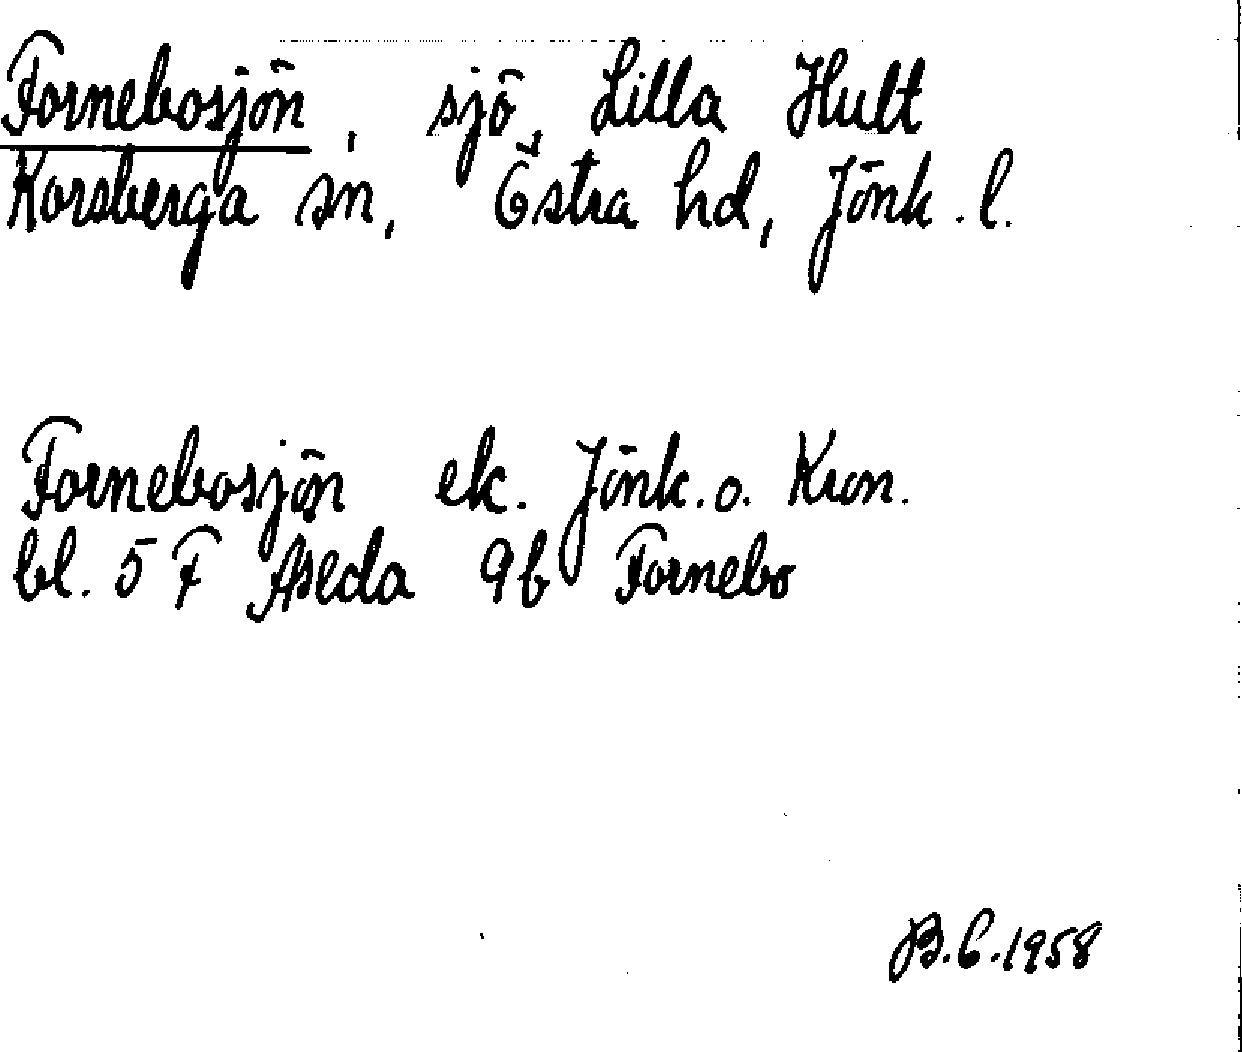 Fornebosjön, sjö, Lilla Hult
Korsberga sn, Östra hd, Jönk. l.
Fornebosjön ek. Jönk. o. Kron.
bl. 5 F Åseda 9b Fornebo
B.C.1958